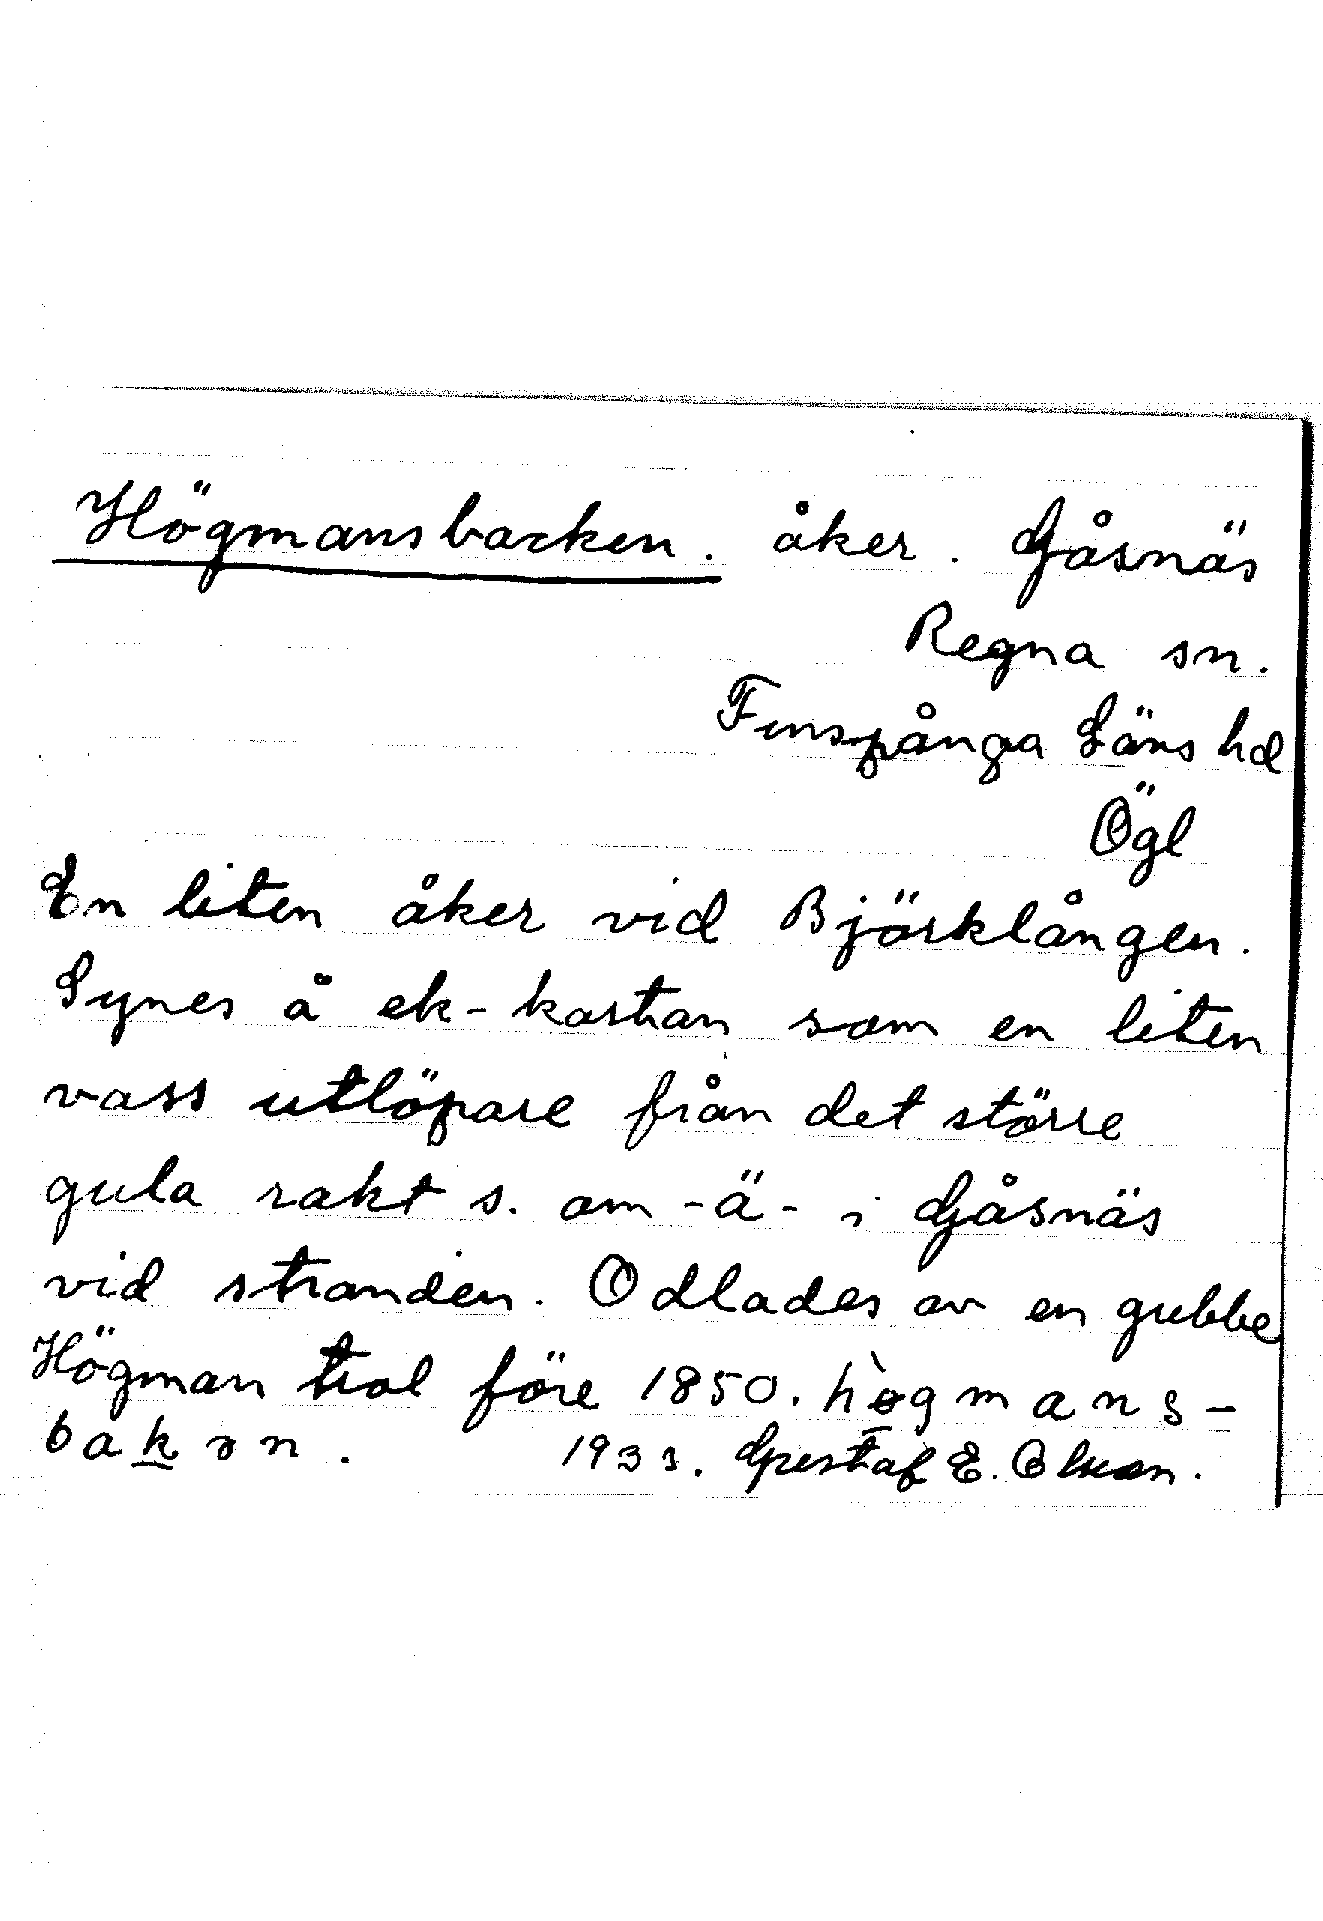 Högmansbacken. åker. Gåsnäs
Regna sn.
Finspånga Läns hd
Ögl
En liten åker vid Björklången.
Synes å ek-kartan som en liten
vass utlöpare från det större
gula rakt s. om -ä- i Gåsnäs
vid stranden. Odlades av en gubbe
Högman trol före 1850. hògmans-
bakən. Gustaf E.